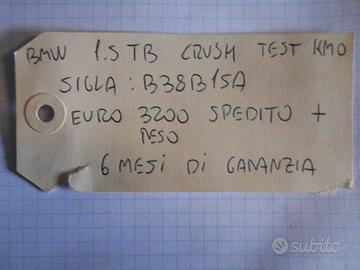 BMW 1.5 TB CRUSH TEST KM0
SIGLA : B38B15A
EURO 3200 SPEDITO +
RESO
6 MESI DI GARANZIA
subito